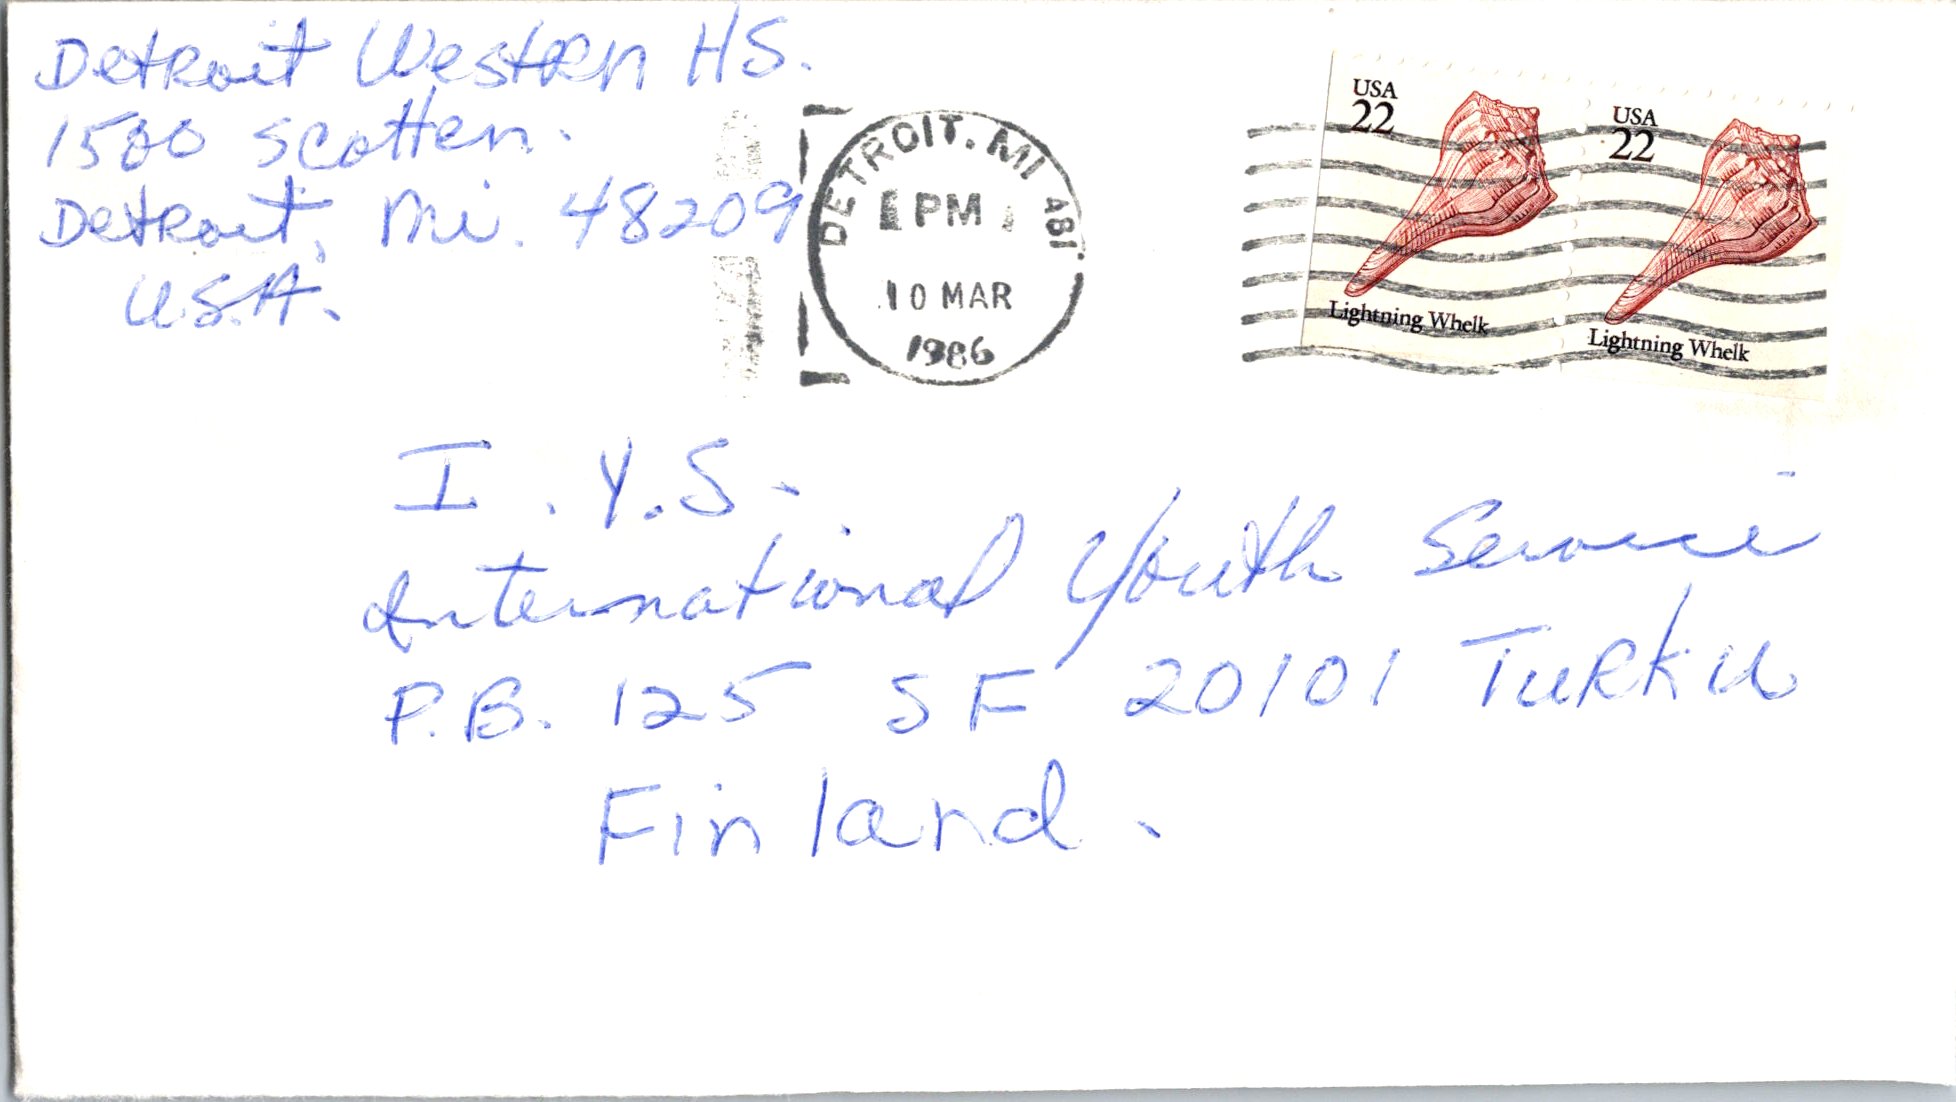 Detroit Western HS.
1500 Scotten.
Detroit, Mi. 48209
U.S.A.
DETROIT. MI 481
PM
10 MAR
1986
USA
22
Lightning Whelk
USA
22
Lightning Whelk
I.Y.S.
International Youth Service
P.B. 125 SF 20101 TURKU
Finland.